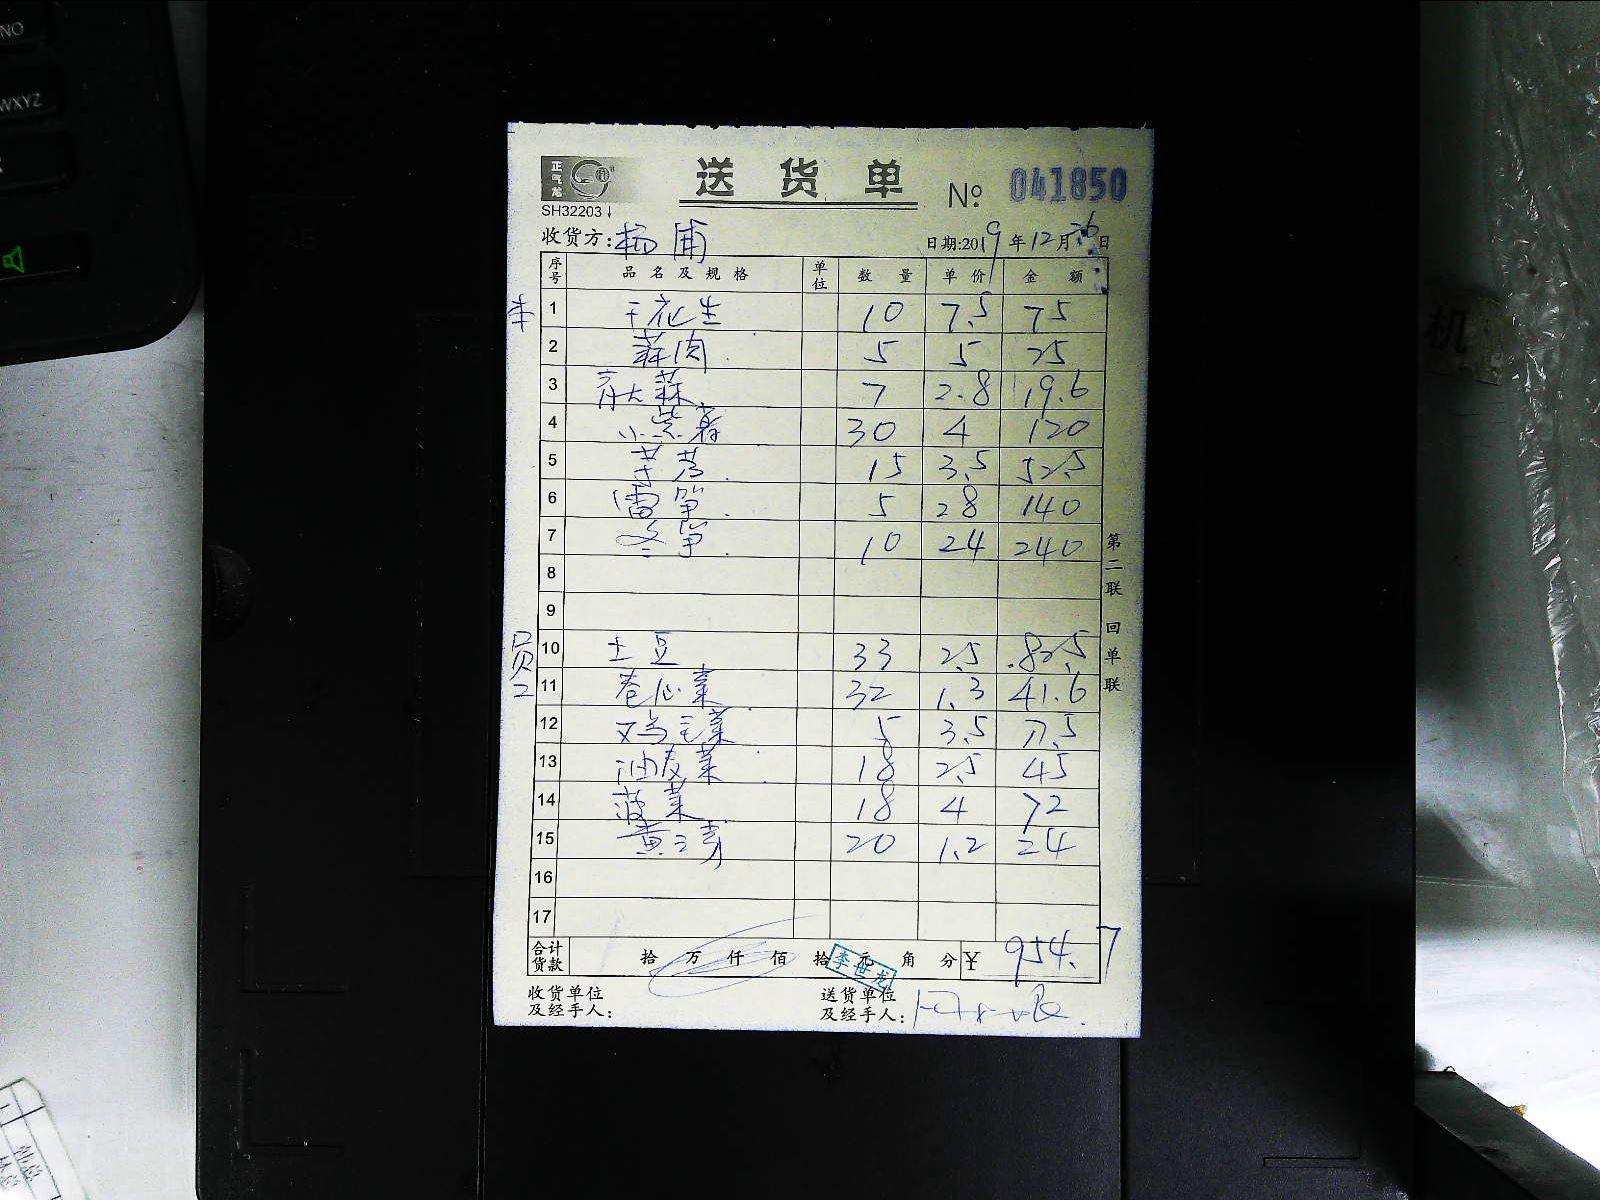 NO
WXYZ
正气龙
送货单
№ 041850
SH32203
收货方: 杨浦
日期:2019年12月26日
序号 品名及规格 单位 数量 单价 金额
1 干花生 10 7.5 75
2 蒜肉 5 5 25
3 青大蒜 7 2.8 19.6
4 小紫薯 30 4 120
5 芋艿 15 3.5 52.5
6 雷笋 5 28 140
7 冬笋 10 24 240
8
9
员工
10 土豆 33 2.5 82.5
11 卷心菜 32 1.3 41.6
12 鸡毛菜 5 3.5 17.5
13 油麦菜 18 2.5 45
14 菠菜 18 4 72
15 黄豆芽 20 1.2 24
16
17
合计货款 拾万仟佰拾元角分 ¥ 954.7
李世龙
收货单位及经手人:
送货单位及经手人:
第二联 回单联
机